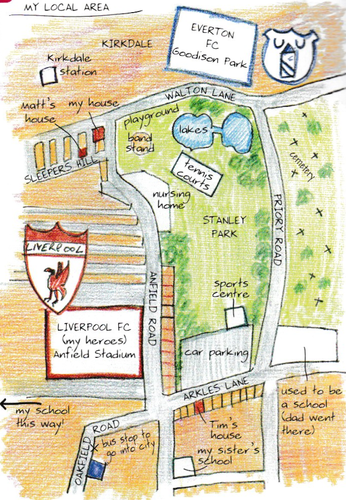 MY LOCAL AREA
EVERTON
FC
Goodison Park
KIRKDALE
Kirkdale
station
WALTON LANE
matt's
house
my house
playground
band
stand
lakes
cemetery
SLEEPERS HILL
tennis
courts
nursing
home
PRIORY ROAD
STANLEY
PARK
LIVERPOOL
ANFIELD ROAD
sports
centre
LIVERPOOL FC
(my heroes)
Anfield Stadium
car parking
ARKLES LANE
my school
this way!
used to be
a school
(dad went
there)
OAKFIELD ROAD
bus stop to
go into city
Tim's
house
my sister's
school